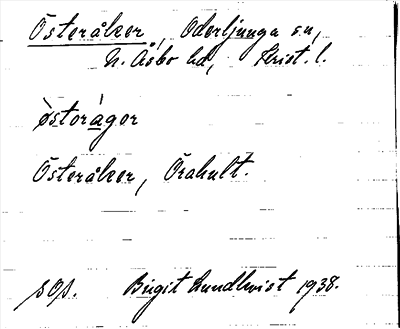 Österåker, Oderljunga sn,
N. Åsbo hd, Krist. l.
òstorágor
Österåker, Örahult.
sOp. Birgit Lundkvist 1938.